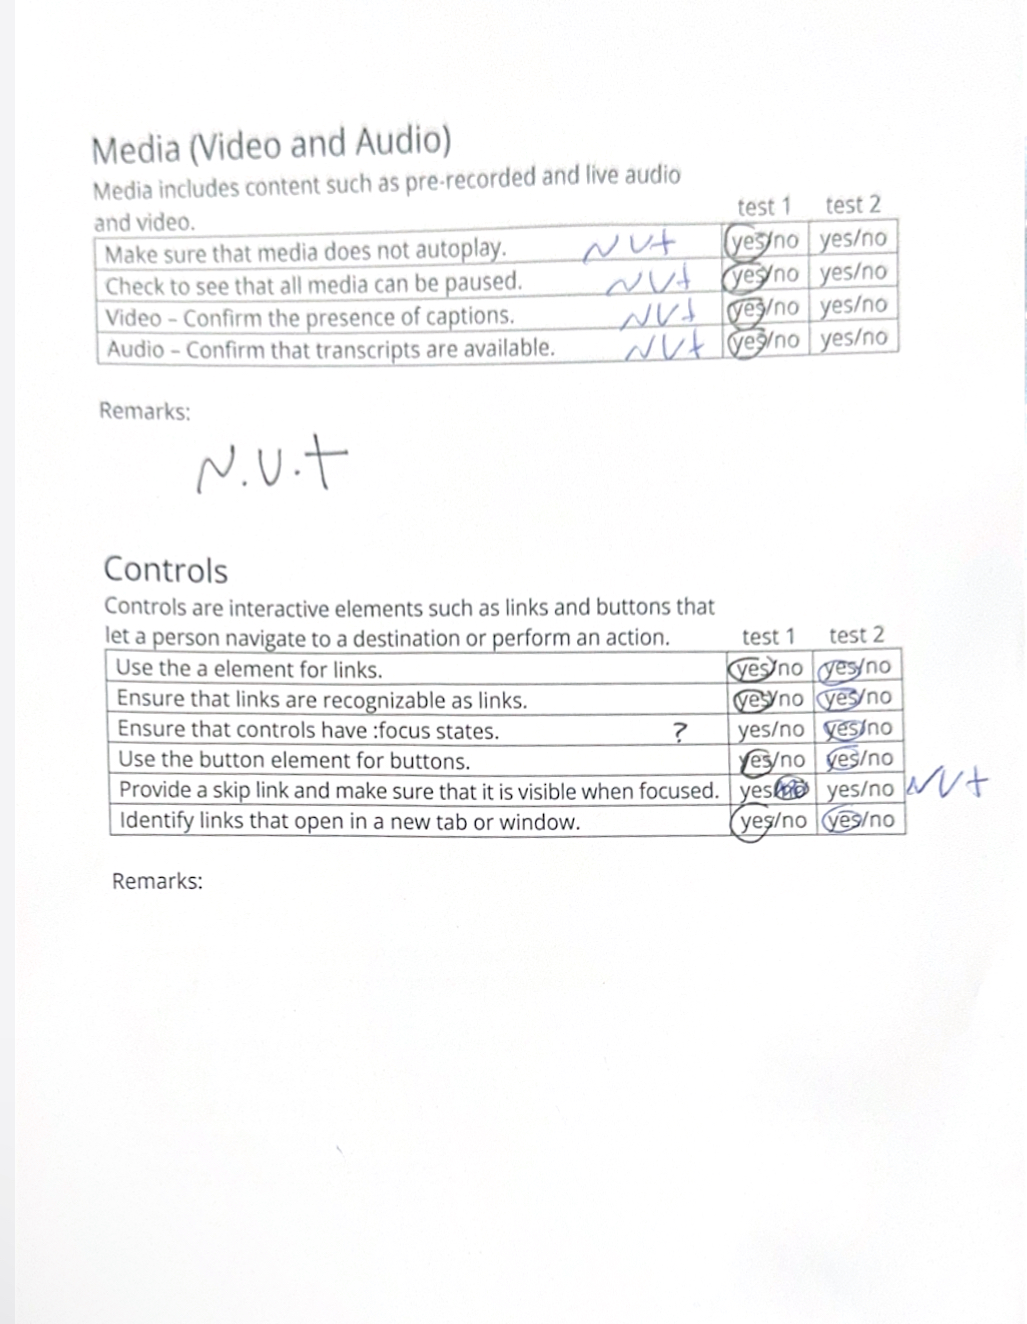 Media (Video and Audio)
Media includes content such as pre-recorded and live audio
and video. test 1 test 2
Make sure that media does not autoplay. NVt yes/no yes/no
Check to see that all media can be paused. NVt yes/no yes/no
Video – Confirm the presence of captions. NVt yes/no yes/no
Audio – Confirm that transcripts are available. NVt yes/no yes/no
Remarks:
N.V.t
Controls
Controls are interactive elements such as links and buttons that
let a person navigate to a destination or perform an action. test 1 test 2
Use the a element for links. yes/no yes/no
Ensure that links are recognizable as links. yes/no yes/no
Ensure that controls have :focus states. ? yes/no yes/no
Use the button element for buttons. yes/no yes/no
Provide a skip link and make sure that it is visible when focused. yes/no yes/no NVt
Identify links that open in a new tab or window. yes/no yes/no
Remarks: